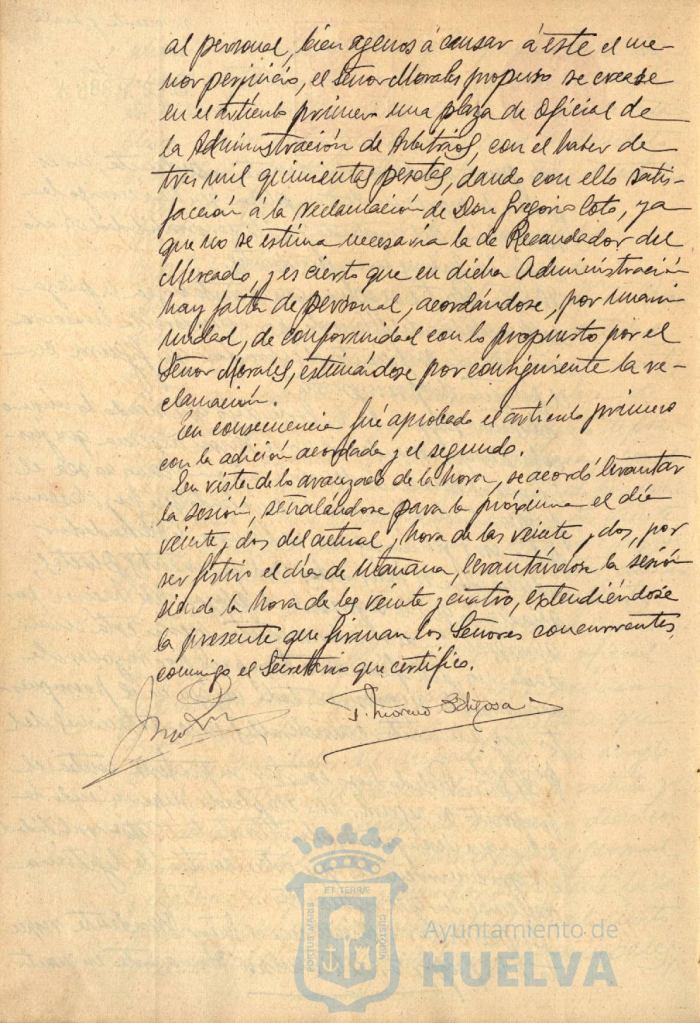 al personal, bien agenos á causar á este el me-
nor perjuicio, el Señor Morales propuso se crease
en el artículo primero una plaza de Oficial de
la Administración de Arbitrios, con el haber de
tres mil quinientas pesetas, dando con ello satis-
facción á la reclamación de Don Gregorio Coto, ya
que no se estima necesaria la de Recaudador del
Mercado, y es cierto que en dicha Administración
hay falta de personal, acordándose, por unani
midad, de conformidad con lo propuesto por el
Señor Morales, estimándose por consiguiente la re-
clamación.
En consecuencia fué aprobado el artículo primero
con la adición acordada y el segundo.
En vista de lo avanzado de la hora, se acordó levantar
la sesión, señalándose para la próxima el día
veinte y dos del actual y hora de las veinte y dos, por
ser festivo el día de mañana, levantándose la sesión
siendo la hora de las veinte y cuatro, extendiéndose
la presente que firman los Señores concurrentes,
conmigo el Secretario que certifico.
Moreno
PORTUS MARIS ET TERRÆ CUSTODIA
Ayuntamiento de
HUELVA